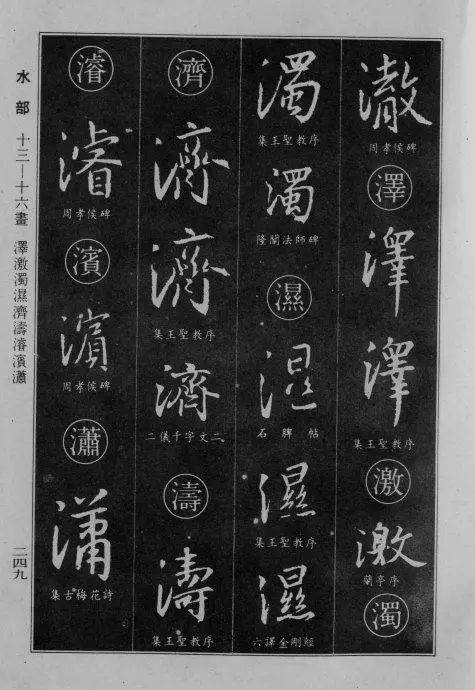 澈
周孝侯碑
澤
澤
澤
集王聖教序
激
激
蘭亭序
濁
濁
集王聖教序
濁
隆闡法師碑
濕
湿
石脾帖
濕
集王聖教序
濕
六譯金剛經
濟
濟
濟
集王聖教序
濟
二儀千字文二
濤
濤
集王聖教序
濬
濬
周孝侯碑
濱
濱
周孝侯碑
瀟
瀟
集古梅花詩
水部 十三—十六畫 澤激濁濕濟濤濬濱瀟
二四九